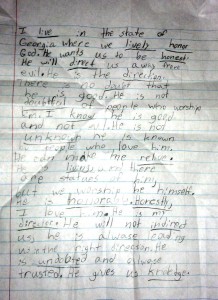 I live in the state of
Georgia where we lively honor
God. He wants us to be honest.
He will direct us away from
evil. He is the direction.
There is no doubt that
he is good. He is not
doubtful of people who worship
him. I know he is good
and not evil. He is not
unknown he is known
by people who love him.
He can make me relive.
He is lively. Were there
one statues of him,
but we worship be himself.
He is honorable. Honestly,
I love him. He is my
director. He will not indirect
us, he alwase leading
us in the right direction. He
is undoubted and alwase
trusted. He gives us knowledge.